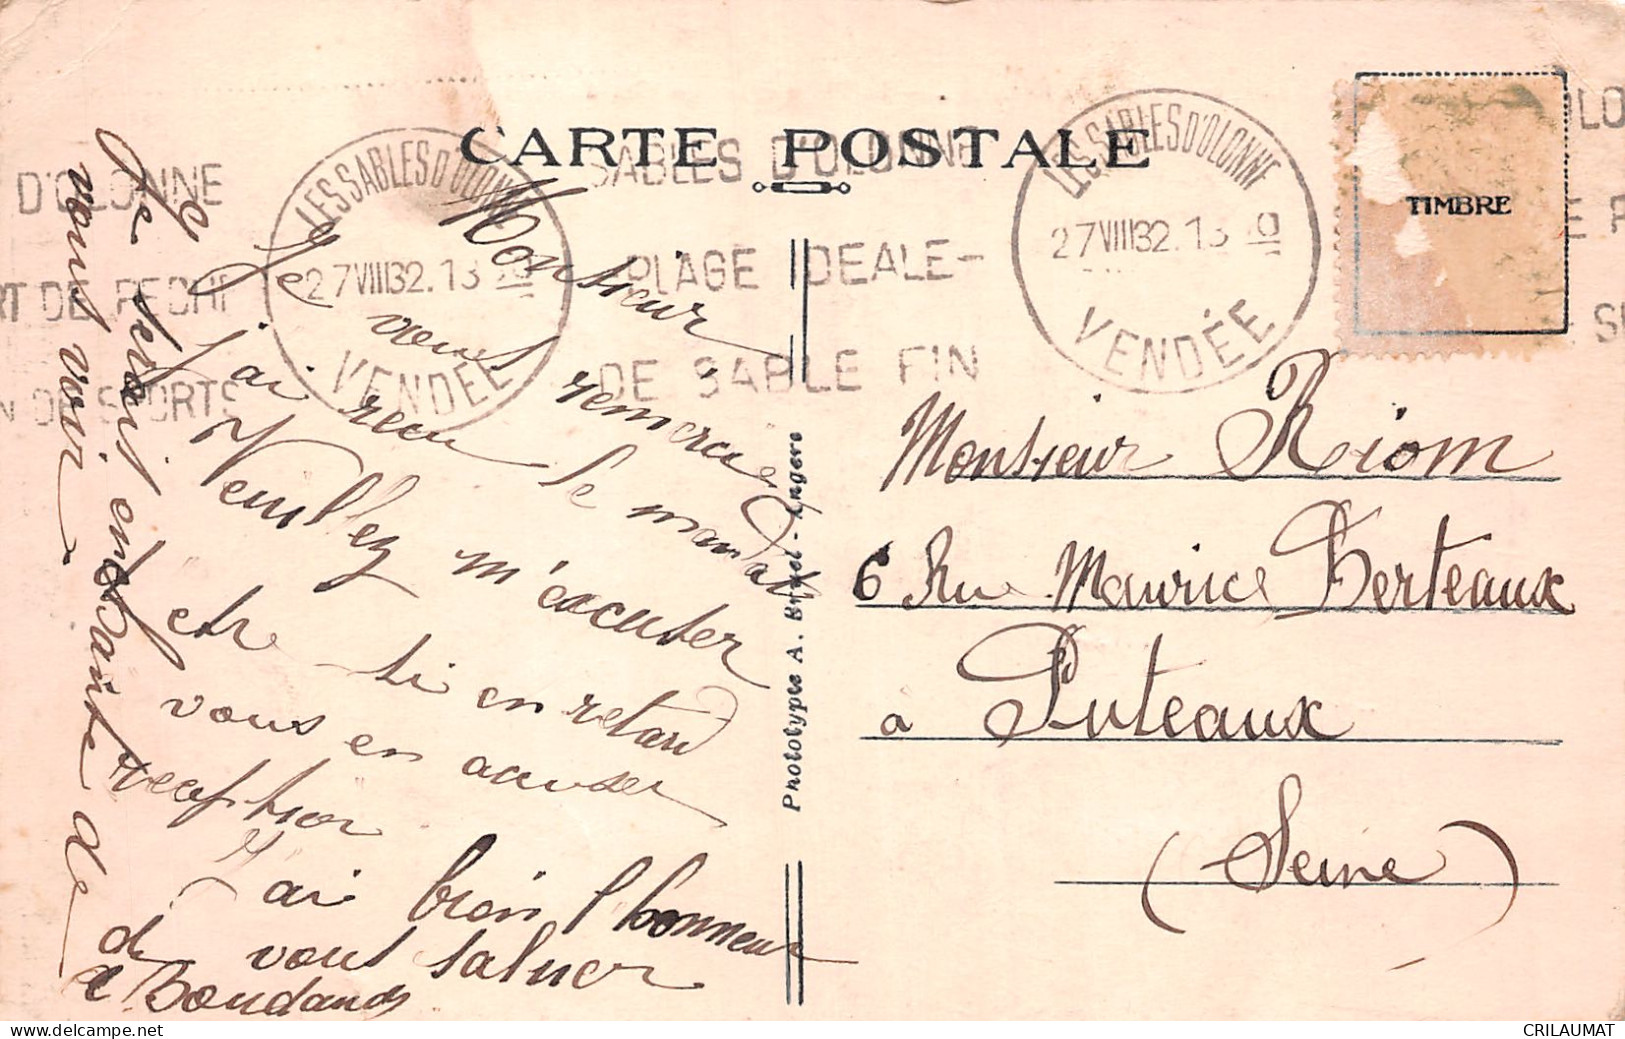 CARTE POSTALE
LES SABLES D'OLONNE
27 VIII 32.13
VENDÉE
D'OLONNE
RT DE PECHE
N DE SPORTS
SABLES D'OLONNE
PLAGE IDEALE-
DE SABLE FIN
LES SABLES D'OLONNE
27 VIII 32.13
VENDÉE
TIMBRE
Monsieur
Je vous remercie
j'ai recu le mandat
Veuillez m'excuser
etre si en retard
vous en accuser
reception
J'ai bien l'honneur
de vous saluer
Je serait enchanté de
vous voir
Phototypie A. Bruel - Angers
Monsieur Riom
6 Rue Maurice Berteaux
a Puteaux
(Seine)
CRILAUMAT